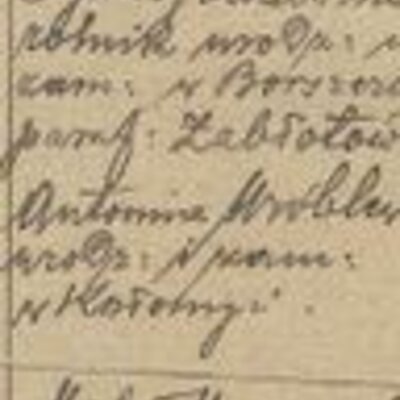 rolnik urodz: i
zam: w Borszczo
par. Zabłotów
Antonina Wróblew
urodz: i zam:
w Kołomyi.